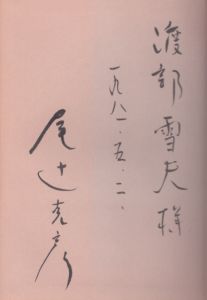 渡部雪夫様
一九八一・五・二、
尾辻克彦